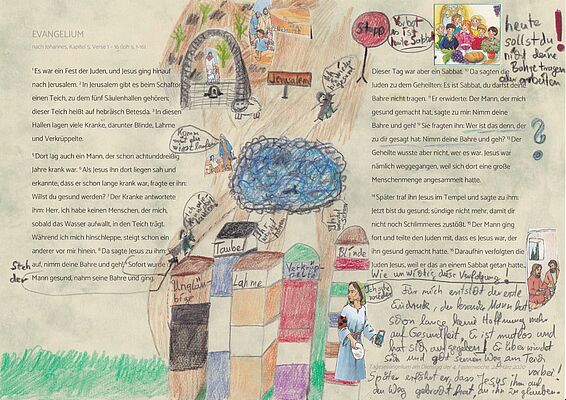 EVANGELIUM
nach Johannes, Kapitel 5, Verse 1 – 16 (Joh 5, 1-16)
¹ Es war ein Fest der Juden, und Jesus ging hinauf
nach Jerusalem. ² In Jerusalem gibt es beim Schaftor
einen Teich, zu dem fünf Säulenhallen gehören;
dieser Teich heißt auf hebräisch Betesda. ³ In diesen
Hallen lagen viele Kranke, darunter Blinde, Lahme
und Verkrüppelte.
⁵ Dort lag auch ein Mann, der schon achtunddreißig
Jahre krank war. ⁶ Als Jesus ihn dort liegen sah und
erkannte, dass er schon lange krank war, fragte er ihn:
Willst du gesund werden? ⁷ Der Kranke antwortete
ihm: Herr, ich habe keinen Menschen, der mich,
sobald das Wasser aufwallt, in den Teich trägt.
Während ich mich hinschleppe, steigt schon ein
anderer vor mir hinein. ⁸ Da sagte Jesus zu ihm:
Steh
auf, nimm deine Bahre und geh! ⁹ Sofort wurde
der
Mann gesund, nahm seine Bahre und ging.
Jerusalem
Stop
heute Sabbat
Taubel
Ungläu
bige
Lahme
Verkrüp
pelte
Blinde
heute
sollst du
nicht deine
Bahre tragen
arbeiten
!
?
Dieser Tag war aber ein Sabbat. ¹⁰ Da sagten die
Juden zu dem Geheilten: Es ist Sabbat, du darfst deine
Bahre nicht tragen. ¹¹ Er erwiderte: Der Mann, der mich
gesund gemacht hat, sagte zu mir: Nimm deine
Bahre und geh! ¹² Sie fragten ihn: Wer ist das denn, der
zu dir gesagt hat: Nimm deine Bahre und geh? ¹³ Der
Geheilte wusste aber nicht, wer es war. Jesus war
nämlich weggegangen, weil sich dort eine große
Menschenmenge angesammelt hatte.
¹⁴ Später traf ihn Jesus im Tempel und sagte zu ihm:
Jetzt bist du gesund; sündige nicht mehr, damit dir
nicht noch Schlimmeres zustößt. ¹⁵ Der Mann ging
fort und teilte den Juden mit, dass es Jesus war, der
ihn gesund gemacht hatte. ¹⁶ Daraufhin verfolgten die
Juden Jesus, weil er das an einem Sabbat getan hatte.
Wie unwichtig diese Verfolgung!
Für mich entsteht der erste
Eindruck, der kranke Mann hat
schon lange keine Hoffnung mehr
auf Gesundheit. Er ist mutlos und
hat sich aufgegeben! Er überwindet
sich und geht seinen Weg am Teich
vorbei!
Tagesevangelium am Dienstag der 4. Fastenwoche, 24. März 2020
Später erfährt er, dass Jesus ihn auf
den Weg gebracht hat, an ihn zu glauben.